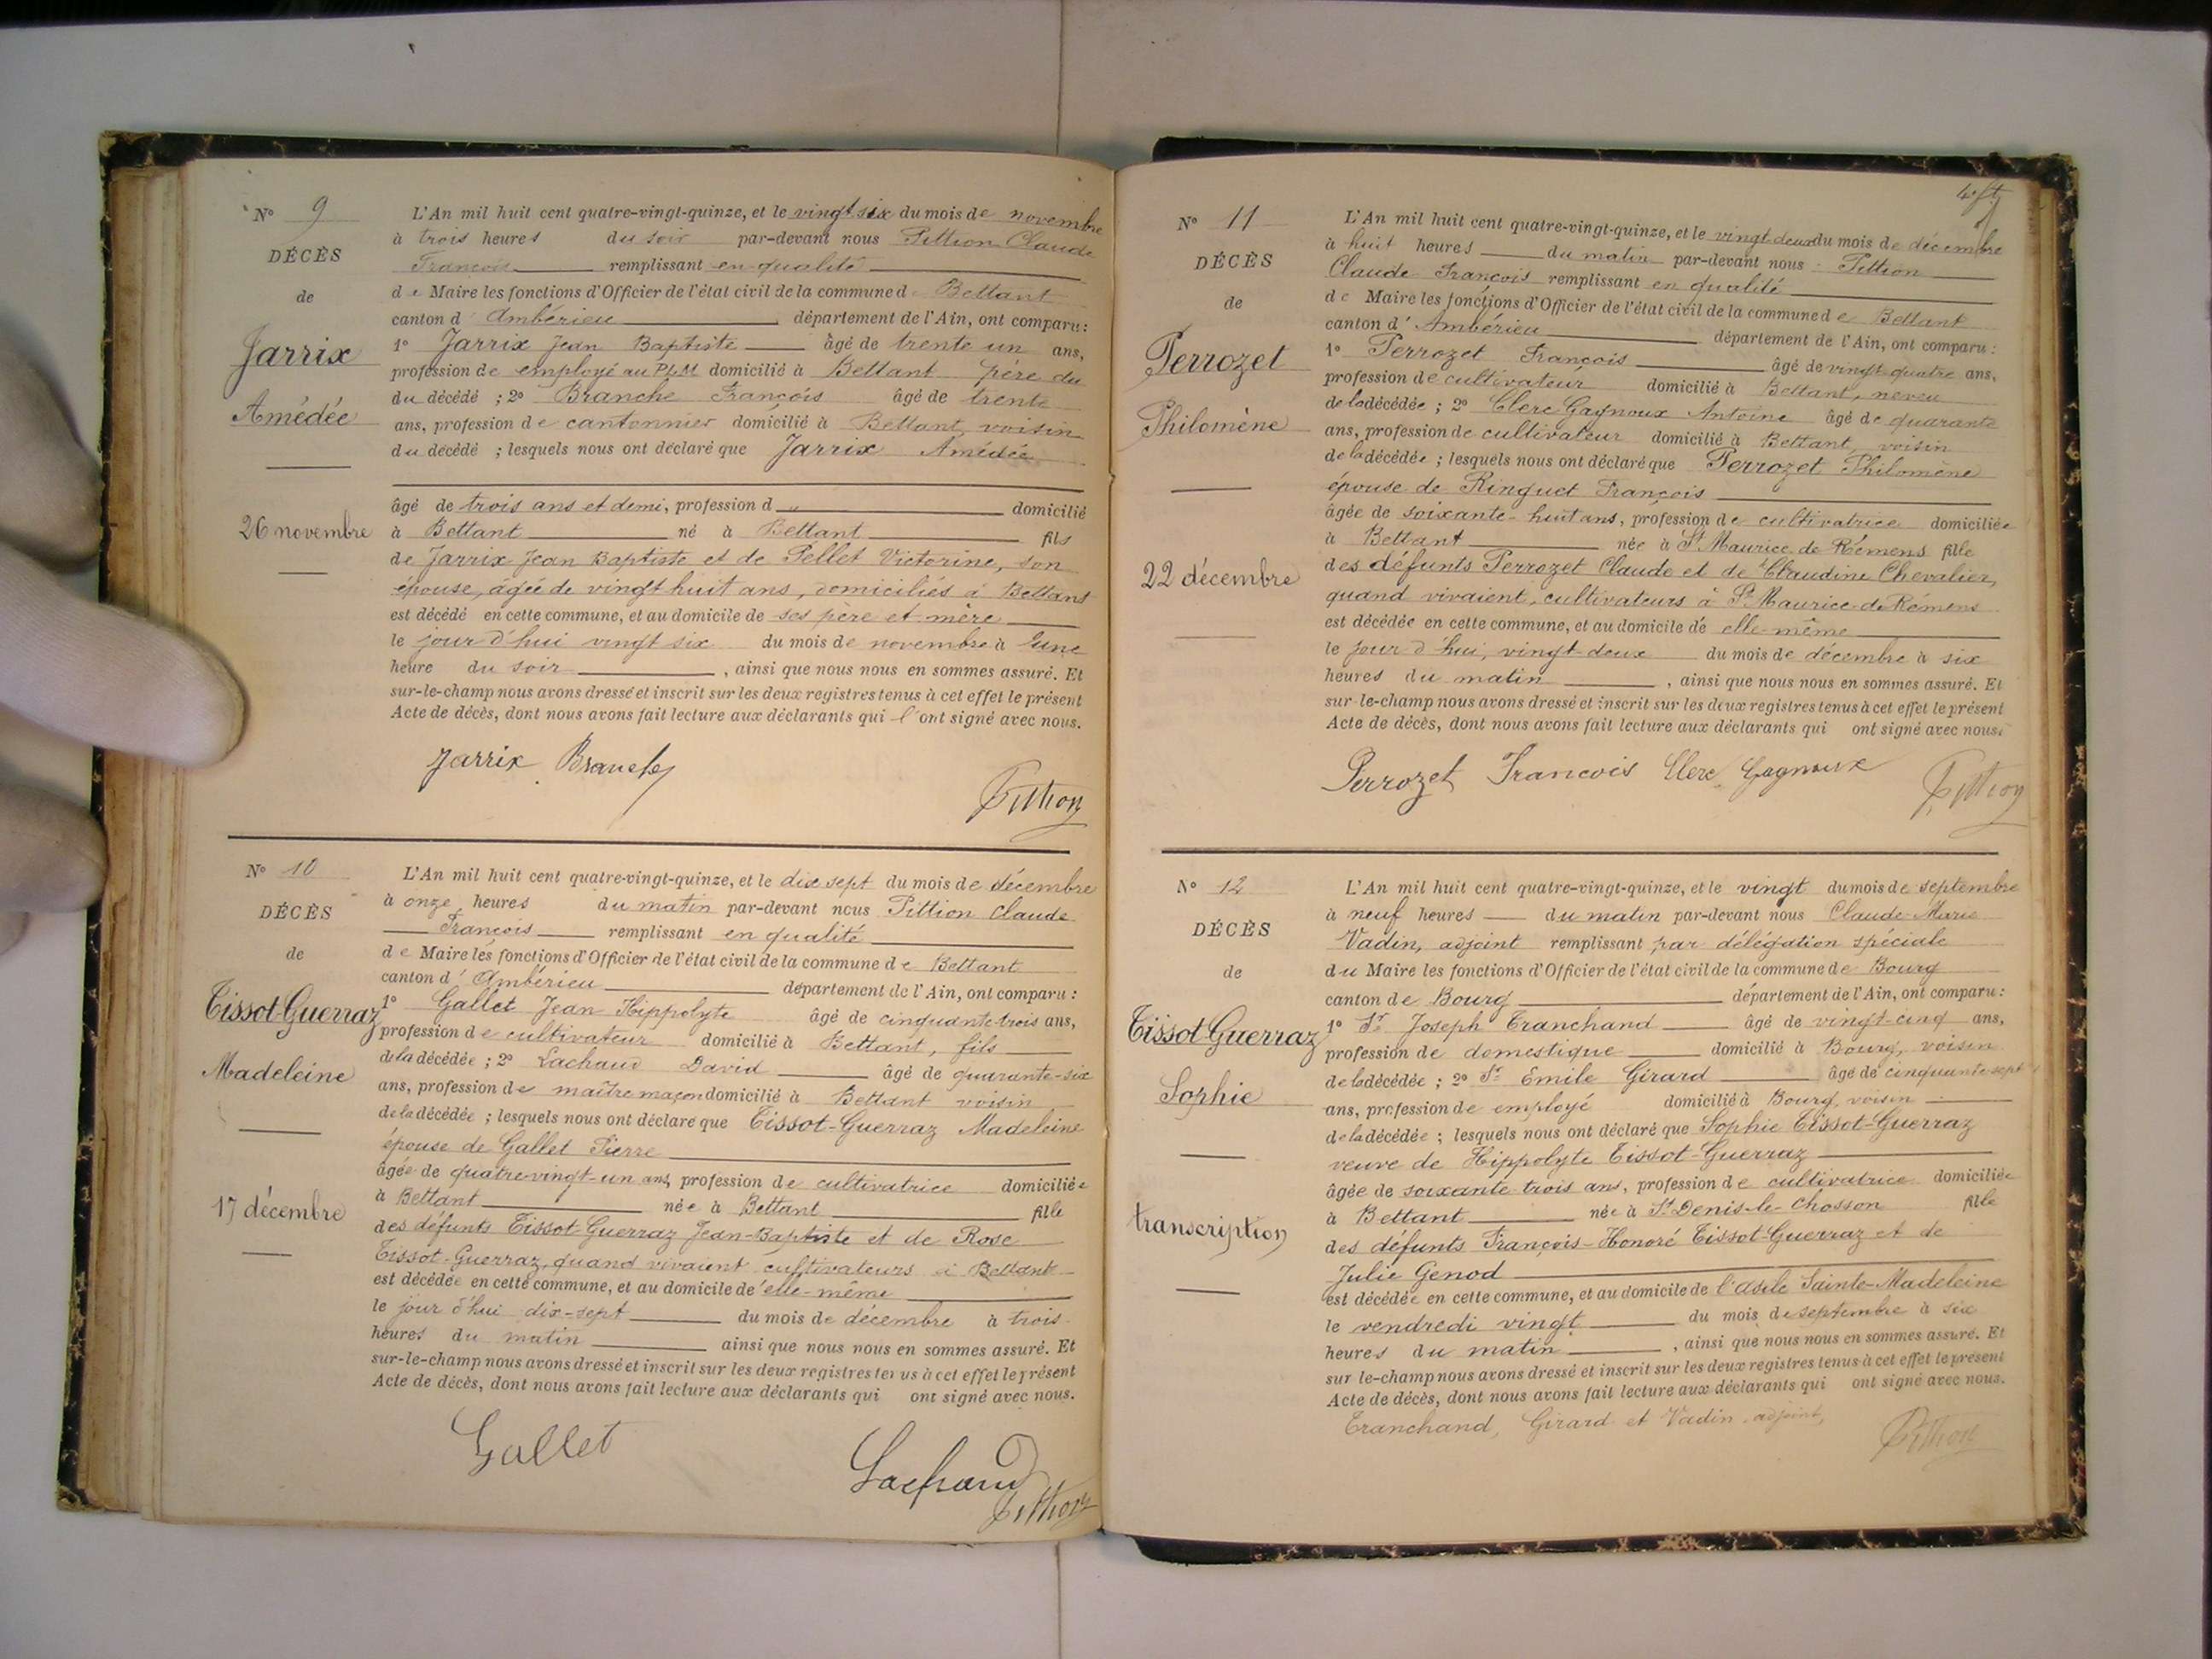 N° 9
DÉCÈS
de
Jarrix
Amédée
26 novembre
L'An mil huit cent quatre-vingt-quinze, et le vingt six du mois de novembre
à trois heures du soir par-devant nous Pittion Claude
François remplissant en qualité
de Maire les fonctions d'Officier de l'état civil de la commune de Bettant
canton d'Ambérieu département de l'Ain, ont comparu :
1° Jarrix Jean Baptiste âgé de trente un ans,
profession de employé au PLM domicilié à Bettant père du
du décédé ; 2° Branche François âgé de trente
ans, profession de cantonnier domicilié à Bettant, voisin
du décédé ; lesquels nous ont déclaré que Jarrix Amédée
âgé de trois ans et demi, profession d „ domicilié
à Bettant né à Bettant fils
de Jarrix Jean Baptiste et de Pellet Victorine, son
épouse, agée de vingt huit ans, domiciliés à Bettant
est décédé en cette commune, et au domicile de ses père et mère
le jour d'hui vingt six du mois de novembre à une
heure du soir , ainsi que nous nous en sommes assuré. Et
sur-le-champ nous avons dressé et inscrit sur les deux registres tenus à cet effet le présent
Acte de décès, dont nous avons fait lecture aux déclarants qui l'ont signé avec nous.
Jarrix Branche
Pittion
N° 10
DÉCÈS
de
Tissot-Guerraz
Madeleine
17 décembre
L'An mil huit cent quatre-vingt-quinze, et le dix sept du mois de décembre
à onze heures du matin par-devant nous Pittion Claude
François remplissant en qualité
de Maire les fonctions d'Officier de l'état civil de la commune de Bettant
canton d'Ambérieu département de l'Ain, ont comparu :
1° Gallet Jean Hippolyte âgé de cinquante-trois ans,
profession de cultivateur domicilié à Bettant, fils
de la décédée ; 2° Lachaud David âgé de quarante-six
ans, profession de maître maçon domicilié à Bettant voisin
de la décédée ; lesquels nous ont déclaré que Tissot-Guerraz Madeleine
épouse de Gallet Pierre
âgée de quatre-vingt-un ans, profession de cultivatrice domiciliée
à Bettant née à Bettant fille
des défunts Tissot-Guerraz Jean-Baptiste et de Rose
Tissot-Guerraz, quand vivaient cultivateurs à Bettant
est décédée en cette commune, et au domicile de elle-même
le jour d'hui dix-sept du mois de décembre à trois
heures du matin ainsi que nous nous en sommes assuré. Et
sur-le-champ nous avons dressé et inscrit sur les deux registres tenus à cet effet le présent
Acte de décès, dont nous avons fait lecture aux déclarants qui ont signé avec nous.
Gallet
Lachaud
Pittion
N° 11
DÉCÈS
de
Perrozet
Philomène
22 décembre
L'An mil huit cent quatre-vingt-quinze, et le vingt-deux du mois de décembre
à huit heures du matin par-devant nous Pittion
Claude François remplissant en qualité
de Maire les fonctions d'Officier de l'état civil de la commune de Bettant
canton d'Ambérieu département de l'Ain, ont comparu :
1° Perrozet François âgé de vingt-quatre ans,
profession de cultivateur domicilié à Bettant, neveu
de la décédée ; 2° Clerc Gagnoux Antoine âgé de quarante
ans, profession de cultivateur domicilié à Bettant, voisin
de la décédée ; lesquels nous ont déclaré que Perrozet Philomène
épouse de Ringuet François
âgée de soixante-huit ans, profession de cultivatrice domiciliée
à Bettant née à St Maurice de Rémens fille
des défunts Perrozet Claude et de Claudine Chevalier,
quand vivaient, cultivateurs à St Maurice-de-Rémens
est décédée en cette commune, et au domicile de elle-même
le jour d'hui, vingt-deux du mois de décembre à six
heures du matin , ainsi que nous nous en sommes assuré. Et
sur-le-champ nous avons dressé et inscrit sur les deux registres tenus à cet effet le présent
Acte de décès, dont nous avons fait lecture aux déclarants qui ont signé avec nous.
Perrozet Francois Clerc Gagnoux
Pittion
N° 12
DÉCÈS
de
Tissot Guerraz
Sophie
transcription
L'An mil huit cent quatre-vingt-quinze, et le vingt du mois de septembre
à neuf heures du matin par-devant nous Claude Marie
Vadin, adjoint remplissant par délégation spéciale
du Maire les fonctions d'Officier de l'état civil de la commune de Bourg
canton de Bourg département de l'Ain, ont comparu :
1° Sr Joseph Tranchand âgé de vingt-cinq ans,
profession de domestique domicilié à Bourg, voisin
de la décédée ; 2° Sr Emile Girard âgé de cinquante-sept
ans, profession de employé domicilié à Bourg, voisin
de la décédée ; lesquels nous ont déclaré que Sophie Tissot-Guerraz
veuve de Hippolyte Tissot-Guerraz
âgée de soixante trois ans, profession de cultivatrice domiciliée
à Bettant née à St Denis-le-Chosson fille
des défunts François-Honoré Tissot-Guerraz et de
Julie Genod
est décédée en cette commune, et au domicile de l'asile Sainte-Madeleine
le vendredi vingt du mois de septembre à six
heures du matin , ainsi que nous nous en sommes assuré. Et
sur-le-champ nous avons dressé et inscrit sur les deux registres tenus à cet effet le présent
Acte de décès, dont nous avons fait lecture aux déclarants qui ont signé avec nous.
Tranchand, Girard et Vadin adjoint,
Pittion